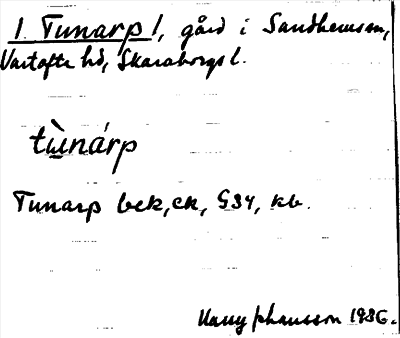 1. Tunarp 1, gård i Sandhemssn,
Vartofta hd, Skaraborgs l.
tùnárp
Tunarp bek, ek, G34, kb.
Harry Johansson 1936.